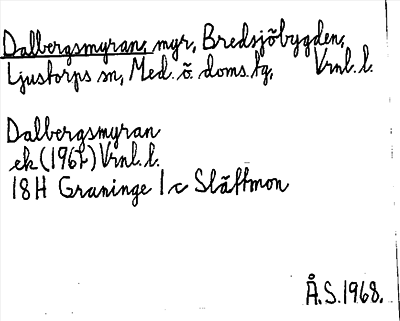 Dalbergsmyran, myr, Bredsjöbygden,
Ljustorps sn, Med. ö. doms.tg, Vrnl. l.
Dalbergsmyran
ek (1967) Vrnl. l.
18H Graninge 1c Slättmon
Å.S. 1968.